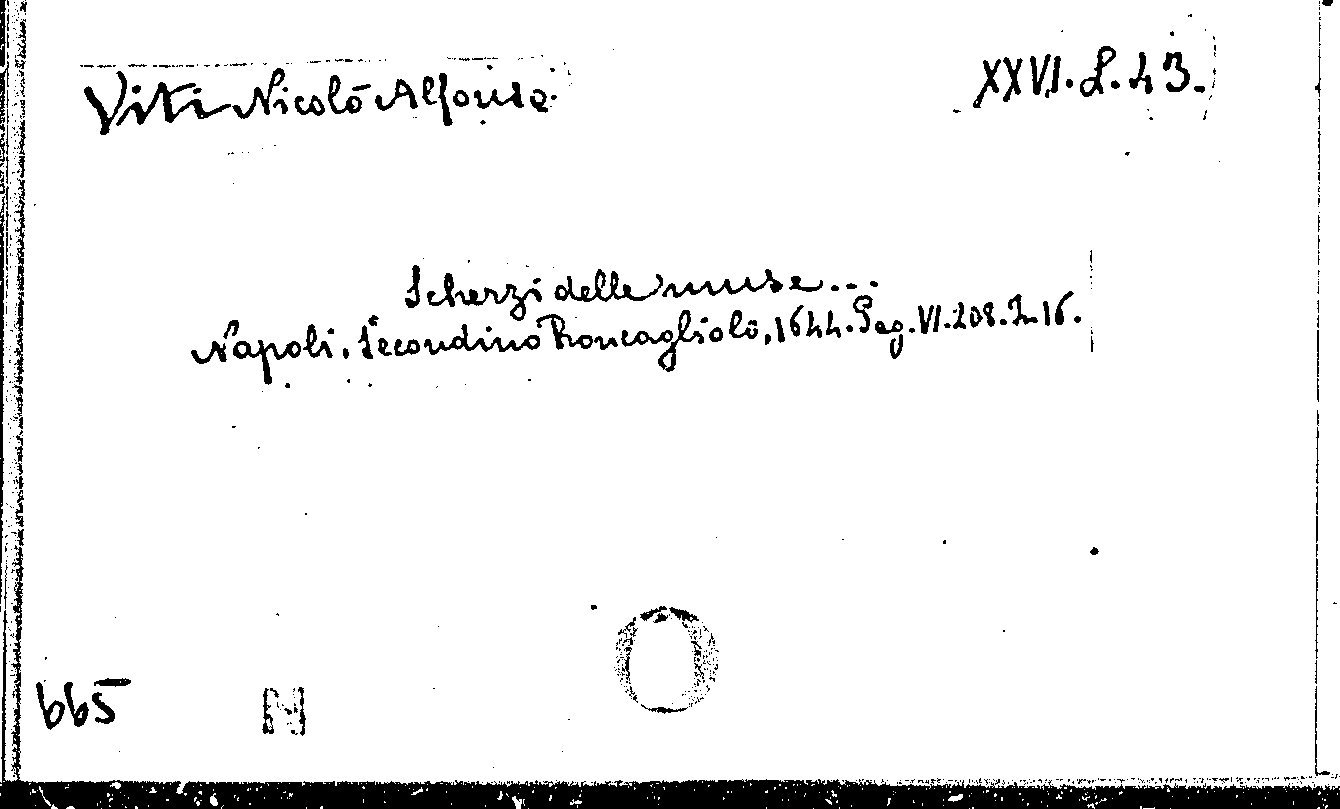 Viti Nicolò Alfonso.
XXVI. L. 43.
Scherzi delle muse...
Napoli, Secondino Roncagliolo, 1644. Pag. VI. 208. In-16.
665
N